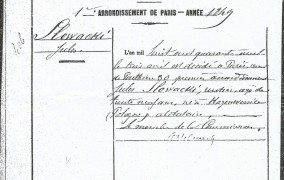 1er ARRONDISSEMENT DE PARIS — ANNÉE 1849
Slowacki
Jules
L'an mil huit cent quarante neuf
le trois avril est décédé à Paris, rue
de Ponthieu 30 premier arrondissement
Jules Slowacki, rentier, âgé de
trente neuf ans, né à
Pologne, célibataire.
Le membre de la Commission